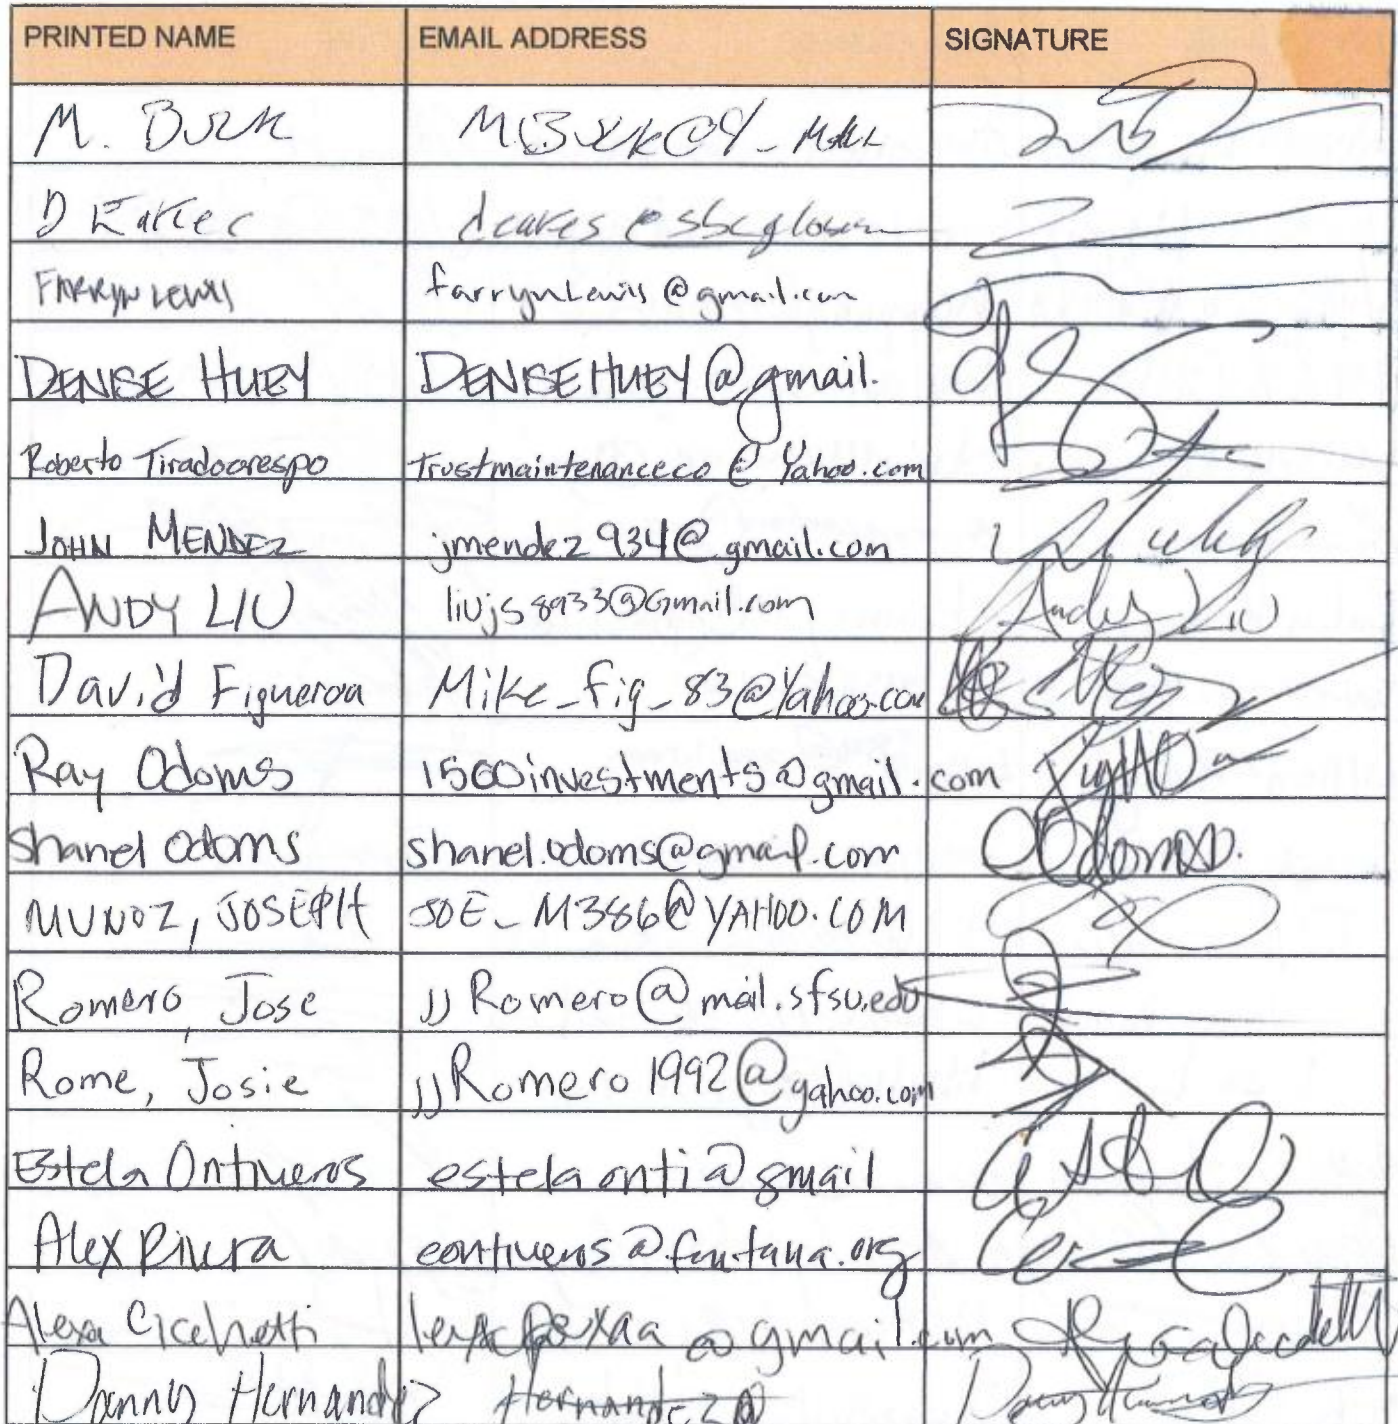 PRINTED NAME EMAIL ADDRESS SIGNATURE
M. Burk MBurk@Y-Mail
D Eakes deakes@sbcgloba
FARRYN LEWIS farrynLewis@gmail.com
DENISE HUEY DENISEHUEY@gmail.
Roberto Tiradocrespo Trustmaintenanceco@Yahoo.com
JOHN MENDEZ jmendez934@gmail.com
ANDY LIU liujs8933@Gmail.com Andy Liu
David Figueroa Mike_fig_83@Yahoo.com
Ray Odoms 1500investments@gmail.com
Shanel Odoms shanel.odoms@gmail.com
MUNOZ, JOSEPH JOE_M386@YAHOO.COM
Romero, Jose jjRomero@mail.sfsu.edu
Rome, Josie jjRomero1992@yahoo.com
Estela Ontiveros estelaonti@gmail
Alex Rivera eontiveros@fontana.org
Alexa Cicchetti @gmail.com
Danny Hernandez Hernandez@ Danny